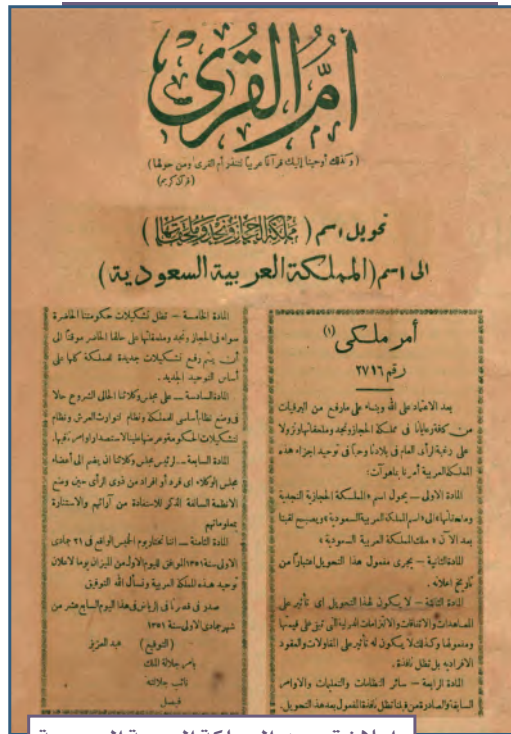 أم القرى
(وكذلك أوحينا إليك قرآناً عربياً لتنذر أم القرى ومن حولها)
(قرآن كريم)
تحويل اسم (مملكة الحجاز ونجد وملحقاتها)
الى اسم (المملكة العربية السعودية)
أمر ملكى (١)
رقم ٢٧١٦
بعد الاعتماد على الله وبناء على مارفع من البرقيات
من كافة رعايانا فى مملكة الحجاز ونجد وملحقاتها ونزولا
على رغبة الرأى العام فى بلادنا وحباً فى توحيد اجزاء هذه
المملكة العربية أمرنا بما هو آت:
المادة الاولى — يحول اسم «المملكة الحجازية النجدية
وملحقاتها» الى «اسم المملكة العربية السعودية» ويصبح لقبنا
بعد الآن «ملك المملكة العربية السعودية»
المادة الثانية — يجرى مفعول هذا التحويل اعتباراً من
تاريخ اعلانه.
المادة الثالثة — لا يكون لهذا التحويل اى تأثير على
المعاهدات والاتفاقات والالتزامات الدولية التى تبقى على قيمتها
ومفعولها وكذلك لا يكون له تأثير على المقاولات والعقود
الافرادية بل تظل نافذة.
المادة الرابعة — سائر النظامات والتعليمات والاوامر
السابقة والصادرة من قبلنا تظل نافذة المفعول بعد هذا التحويل.
المادة الخامسة — تظل تشكيلات حكومتنا الحاضرة
سواء فى الحجاز ونجد وملحقاتها على حالها الحاضر موقتاً الى
أن يتم رفع تشكيلات جديدة للمملكة كلها على
أساس التوحيد الجديد.
المادة السادسة — على مجلس وكلائنا الحالى الشروع حالا
فى وضع نظام أساسى للمملكة ونظام لتوارث العرش ونظام
لتشكيلات الحكومة وعرضها علينا لاستصدار اوامرنا فيها.
المادة السابعة — لرئيس مجلس وكلائنا ان يضم الى أعضاء
مجلس الوكلاء اى فرد أو افراد من ذوى الرأى حين وضع
الانظمة السالفة الذكر للاستفادة من آرائهم والاستنارة
بمعلوماتهم
المادة الثامنة — اننا نختار يوم الخميس الواقع فى ٢١ جمادى
الاولى سنة ١٣٥١ الموافق لليوم الاول من الميزان يوما لاعلان
توحيد هذه المملكة العربية ونسأل الله التوفيق
صدر فى قصرنا فى الرياض فى هذا اليوم السابع عشر من
شهر جمادى الاولى سنة ١٣٥١
(التوقيع) عبد العزيز
بأمر جلالة الملك
نائب جلالته
فيصل